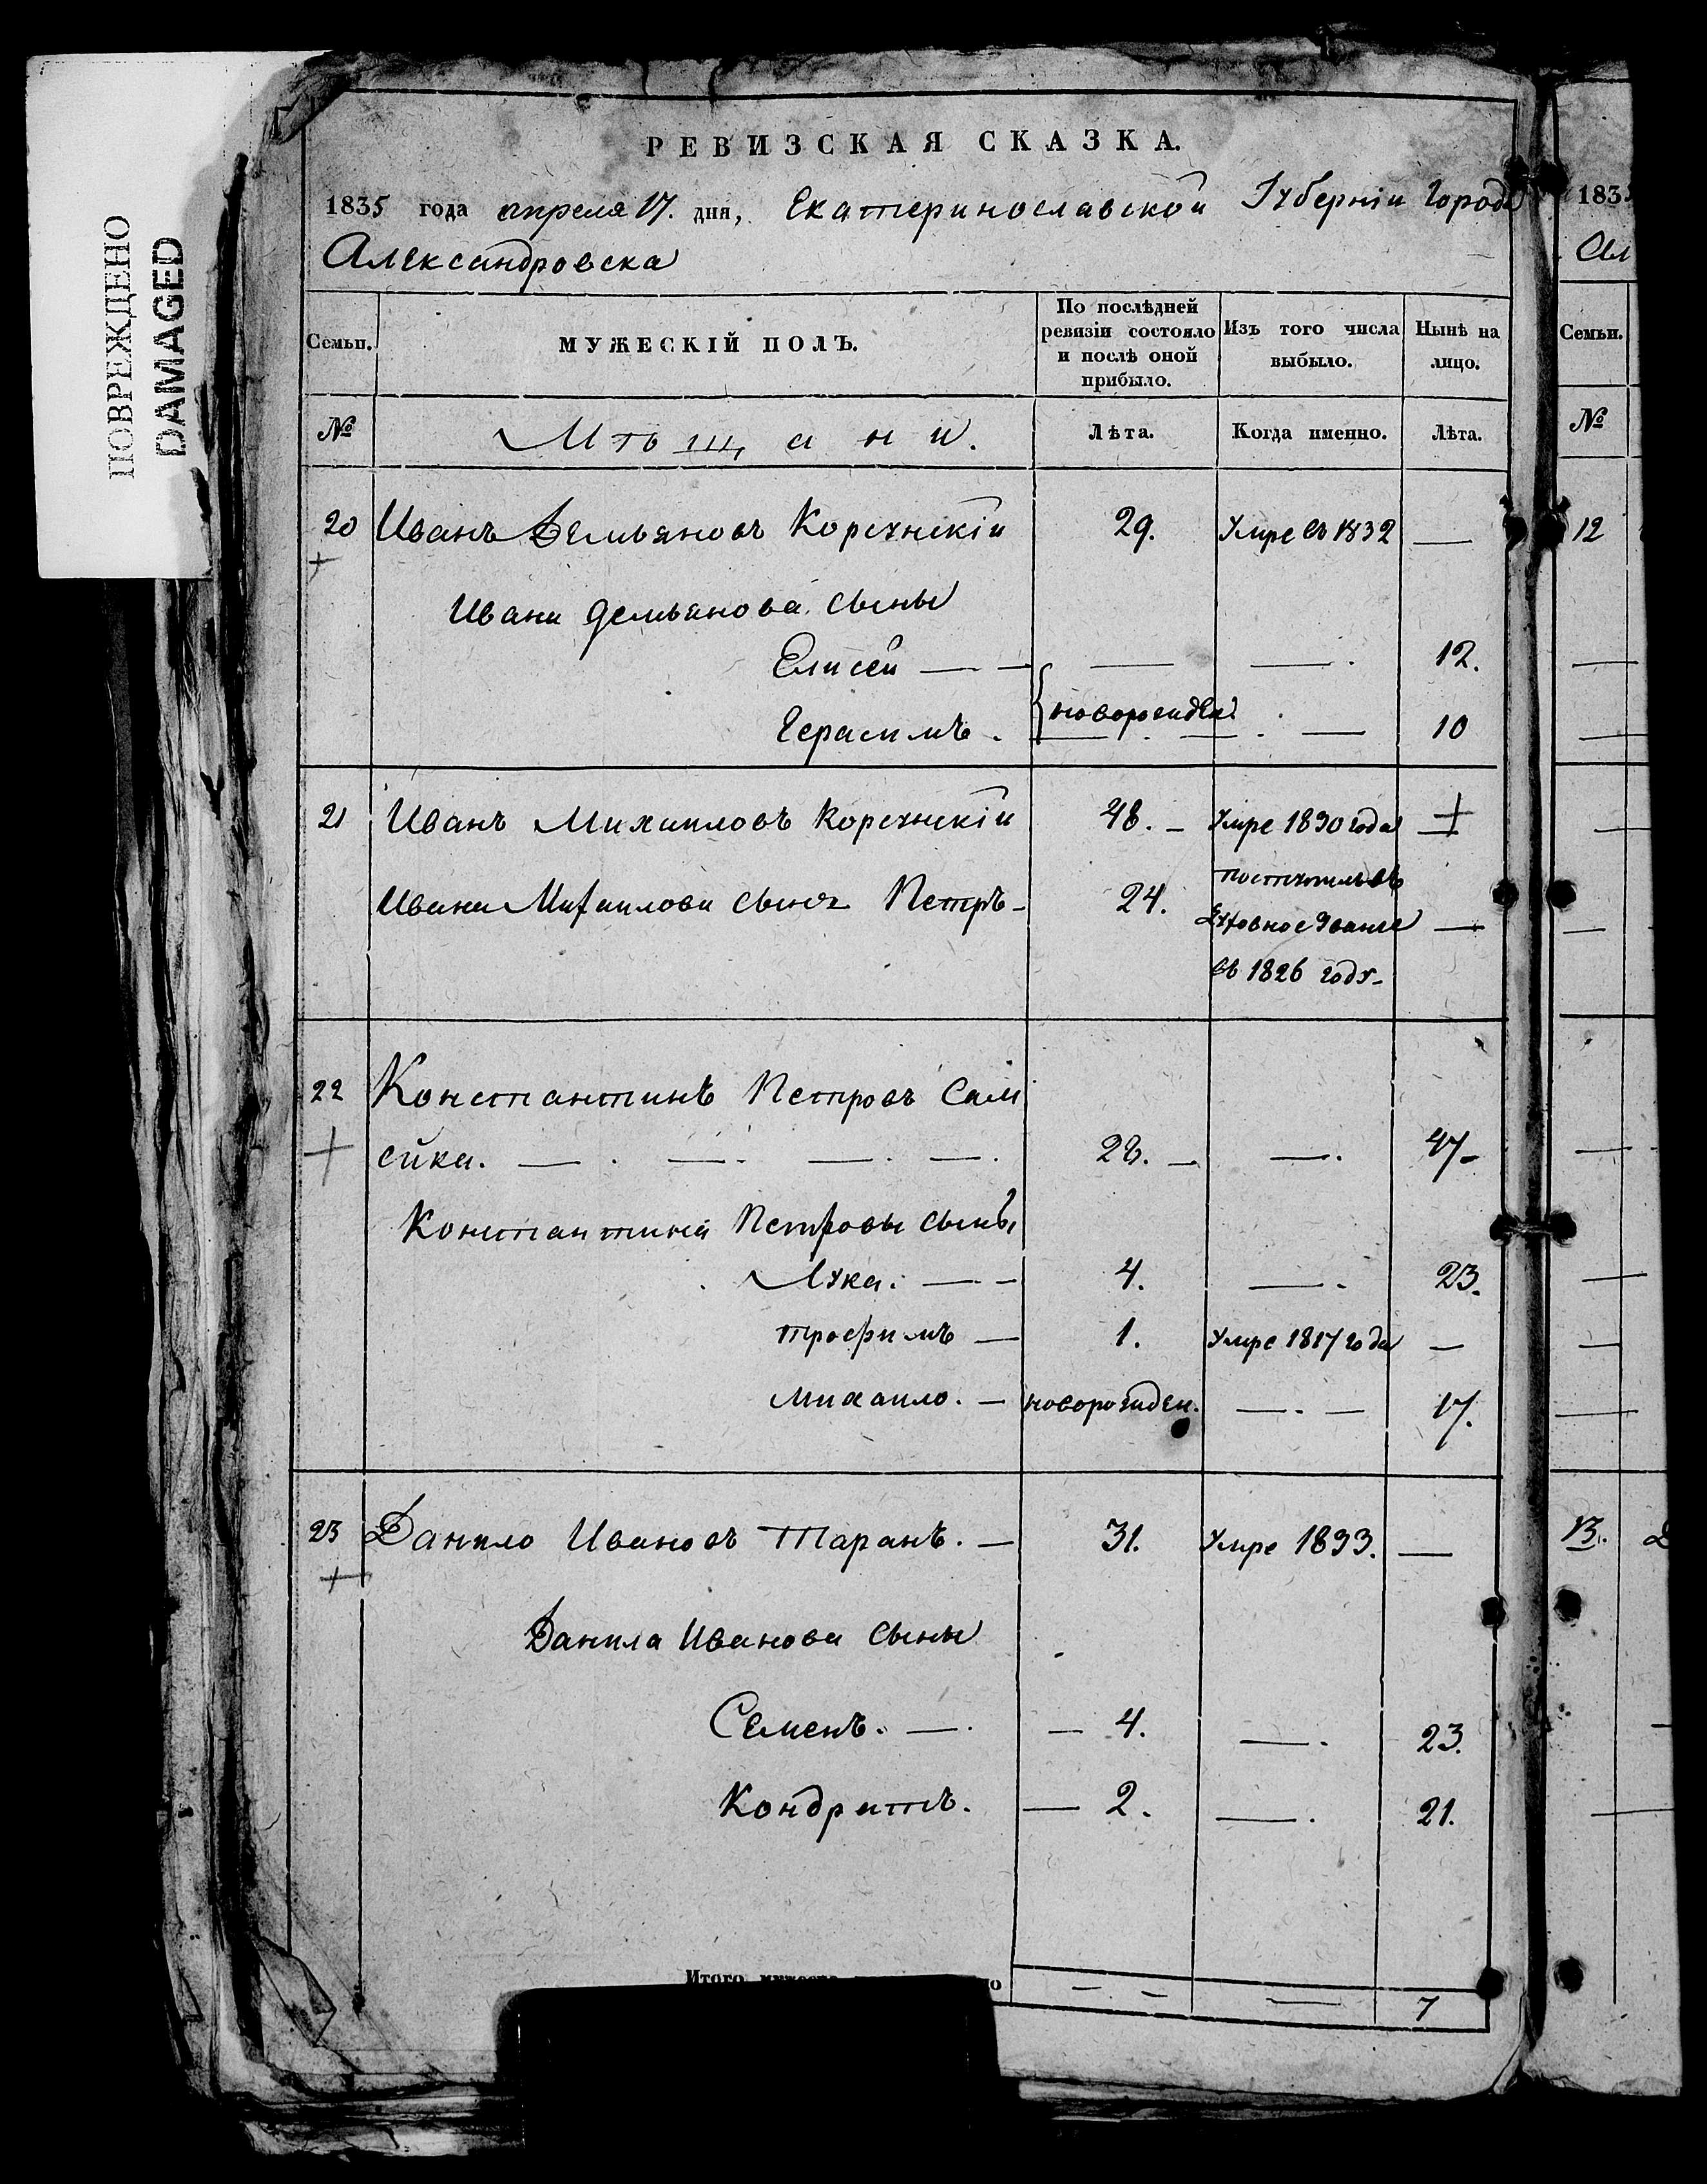 ПОВРЕЖДЕНО
DAMAGED
РЕВИЗСКАЯ СКАЗКА.
1835 года апреля 17. дня, Екатеринославской Губерніи Города
Александровска
Семьи.
МУЖЕСКІЙ ПОЛЪ.
По послѣдней
ревизіи состояло
и послѣ оной
прибыло.
Изъ того числа
выбыло.
Нынѣ на
лицо.
№
Мѣщани.
Лѣта.
Когда именно.
Лѣта.
20 Иванъ Демьяновъ 29. Умре въ 1832 —
+
Ивана Демьянова сыны
Елисей — — — —. 12.
Герасимъ. новорожден. — 10
21 Иванъ Михаиловъ 48. — Умре 1830 года +
Ивана Михаилова сынъ Петръ — 24. поступилъ въ
духовное званіе —
въ 1826 году —
22 Константинъ Петровъ Сам
+ сика. — . — . — . — . 28. — —. 47 —
Константина Петровы сыны
Лука. — — 4. —. 23.
Трофимъ — 1. Умре 1817 года —
Михаило. — новорожден. —. — 17.
23 Данило Ивановъ Таранъ. — 31. Умре 1833. —
+
Данила Иванова сыны
Семенъ. —. — 4. —. 23.
Кондратъ. — 2. —. 21.
Итого
—. — — 7
183
Ал
Семьи.
№
12
13.